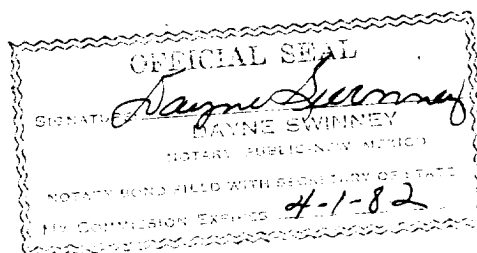 OFFICIAL SEAL
SIGNATURE Dayne Swinney
DAYNE SWINNEY
NOTARY PUBLIC-NEW MEXICO
NOTARY BOND FILED WITH SECRETARY OF STATE
My COMMISSION EXPIRES 4-1-82